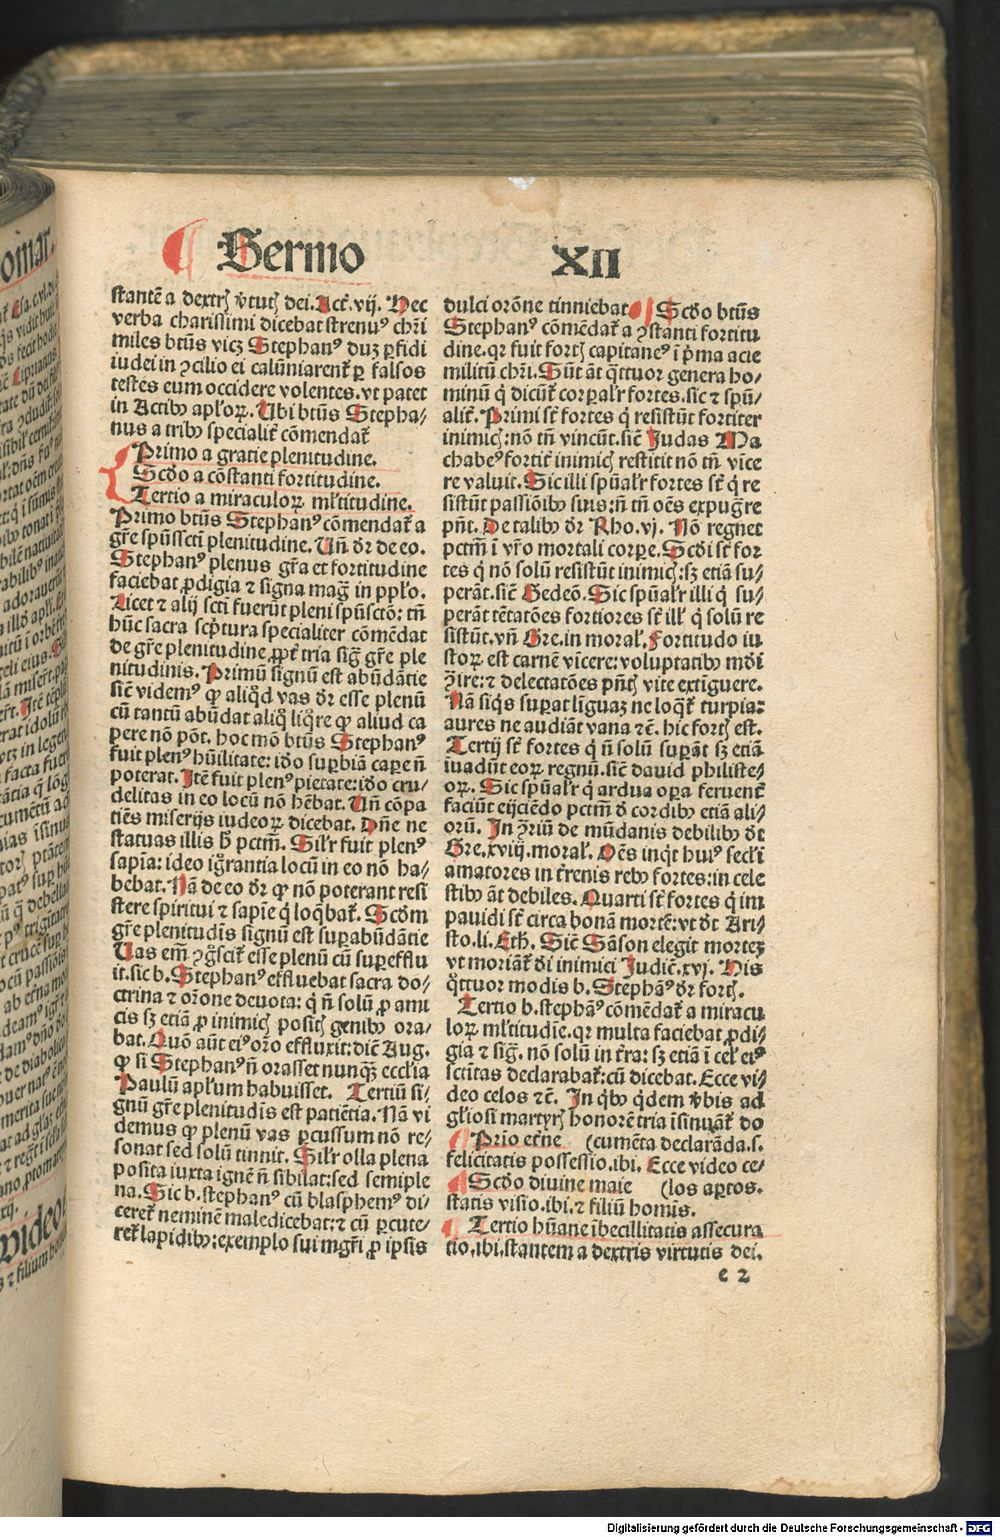 Sermo XII
stantē a dextrꝭ v̓tutꝭ dei. Act̓. vij. Hec
verba charissimi dicebat strenuꝰ chr̄i
miles btūs vicꝫ Stephanꝰ duꝫ ꝑfidi
iudei in ꝯcilio ei calūniarent̓ ꝑ falsos
testes eum occidere volentes. vt patet
in Actibꝰ apl̓oꝝ. Ubi btūs Stepha⸗
nus a tribꝰ specialit̓ cōmendat̓
Primo a gratie plenitudine.
Scd̓o a cōstanti fortitudine.
Tertio a miraculoꝝ ml̓titudine.
Primo btūs Stephanꝰ cōmendat̓ a
gr̄e spūssc̄ti plenitudine. Un̄ dr̄ de eo.
Stephanꝰ plenus gr̄a et fortitudine
faciebat ꝓdigia ⁊ signa maḡ in pp̄lo.
Licet ⁊ alij sc̄ti fuerūt pleni spūscto: tn̄
hūc sacra scp̄tura specialiter cōmēdat
de gr̄e plenitudine, ꝓpt̓ tria siḡ gr̄e ple
nitudinis. Primū signū est abūdātie
sic̄ videmꝰ ꝙ aliq̇d vas dr̄ esse plenū
cū tantū abūdat aliq̇ liq̄re ꝙ aliud ca
pere nō pōt. hoc mō btūs Stephanꝰ
fuit plenꝰ hūilitate: id̓o suꝑbiā caꝑe n̄
poterat. Itē fuit plenꝰ pietate: id̓o cru⸗
delitas in eo locū nō hēbat. Un̄ cōpa
tiēs miserijs iudeoꝝ dicebat. Dn̄e ne
statuas illis h̄ pctm̄. Sil̓r fuit plenꝰ
sapīa: ideo iḡrantia locū in eo nō ha⸗
bebat. Nā de eo dr̄ ꝙ nō poterant resi
stere spiritui ⁊ sapīe q̇ loq̄bat̓. Scd̓m
gr̄e plenitudīs signū est suꝑabūdātie
Uas em̄ ꝯg̊scit̓ esse plenū cū suꝑefflu
it. sic b. Stephanꝰ effluebat sacra do⸗
ctrina ⁊ orōne deuota: q̇ n̄ solū ꝓ ami
cis sꝫ etiā ꝓ inimicꝭ positꝭ genibꝰ ora⸗
bat. Quō aūt eiꝰ orō effluxit: dic̄ Aug.
ꝙ si Stephanꝰ n̄ orasset nunqꝫ eccl̓ia
Paulū apl̓um habuisset. Tertiū si⸗
gnū gr̄e plenitudīs est patiētia. Nā vi
demus ꝙ plenū vas ꝑcussum nō re⸗
sonat sed solū tinnit. Sil̓r olla plena
posita iuxta ignē n̄ sibilat: sed semiple
na. Sic b. stephanꝰ cū blasphemꝰ di⸗
ceret̓ neminē maledicebat: ⁊ cū ꝑcute⸗
ret̓ lapidibꝰ: exemplo sui mgr̄i ꝓ ipsis
dulci orōne tinniebat. Scd̓o btūs
Stephanꝰ cōmēdat̓ a ꝯstanti fortitu
dine. qr fuit fortꝭ capitaneꝰ ī p̓ma acie
militū chr̄i. Sūt āt q̄ttuor genera ho⸗
minū q̇ dicūt̓ corꝑal̓r fortes. sic ⁊ spū⸗
alit̓. Primi st̄ fortes q̇ resistūt fortiter
inimicꝭ: nō tn̄ vincūt. sic̄ Judas Ma
chabeꝰ fortit̓ inimicꝭ restitit nō tn̄ vīce
re valuit. Sic illi spūal̓r fortes st̄ q̇ re
sistūt passiōibꝰ suis: n̄ tn̄ oēs expuḡre
pn̄t. De talibꝰ dr̄ Rho. vj. Nō regnet
pctm̄ ī vr̄o mortali corꝑe. Scd̓i st̄ for
tes q̇ nō solū resistūt inimicꝭ: sꝫ etiā su⸗
perāt. sic̄ Gedeō. Sic spūal̓r illi q̇ su⸗
perāt tētatōes fortiores st̄ ill̓ q̇ solū re
sistūt. vn̄ Gre. in moral̓. Fortitudo iu
stoꝝ est carnē vīcere: voluptatibꝰ mūdi
ꝯ̓ire: ⁊ delectatōes pn̄tꝭ vite extīguere.
Nā siq̇s suꝑat līguaꝫ ne loq̄t̓ turpia:
aures ne audiāt vana ⁊c̄. hic fortꝭ est.
Tertij st̄ fortes q̇ n̄ solū suꝑāt sꝫ etiā
īuadūt eoꝝ regnū. sic̄ dauid philiste⸗
oꝝ. Sic spūal̓r q̇ ardua oꝑa feruent̓
faciūt eijciēdo pctm̄ d̓ cordibꝰ etiā ali⸗
orū. In ꝯ̓riū de mūdanis debilibꝰ dt̄
Gre. xviij. moral̓. Oēs inq̇t huiꝰ secl̓i
amatores in t̓renis rebꝰ fortes: in cele
stibꝰ āt debiles. Quarti st̄ fortes q̇ im
pauidi st̄ circa bonā mortē: vt dt̄ Ari⸗
sto. li. Eth̓. Sic̄ Sāson elegit morteꝫ
vt moriāt̓ d̓i inimici Judic̄. xvj. His
q̄ttuor modis b. Stephāꝰ dr̄ fortꝭ.
Tertio b. stephāꝰ cōmēdat̓ a miracu
loꝝ ml̓titudīe. qr multa faciebat ꝓdi⸗
gia ⁊ siḡ. nō solū in t̓ra: sꝫ etiā ī cel̓ eiꝰ
sctītas declarabat̓: cū dicebat. Ecce vi⸗
deo celos ⁊c̄. In q̇bꝰ q̇dem v̓bis ad
gl̓iosi martyrꝭ honorē tria īsinuāt̓ do
Prīo et̓ne (cumēta declarāda. s.
felicitatis possessio. ibi. Ecce video ce⸗
Scd̓o diuine maie (los aꝑtos.
statis visio. ibi. ⁊ filiū homis.
Tertio hūane ībecillitatis assecura
tio. ibi. stantem a dextris virtutis dei.
e 2
Digitalisierung gefördert durch die Deutsche Forschungsgemeinschaft - DFG